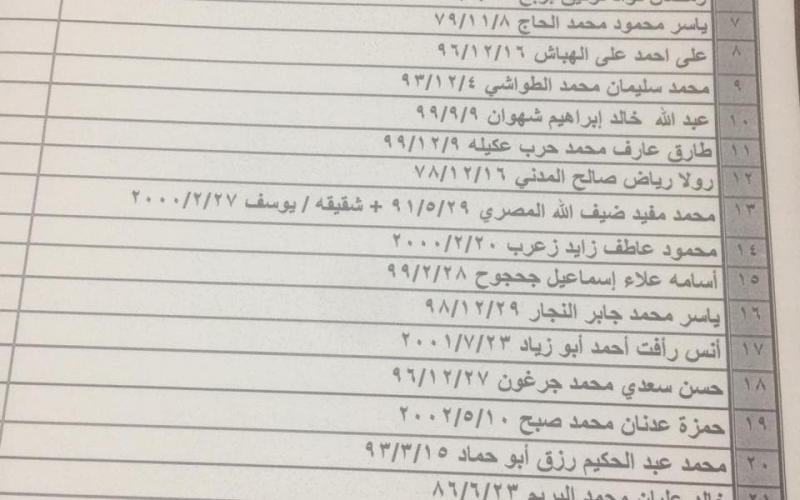 ٧ ياسر محمود محمد الحاج ٧٩/١١/٨
٨ على احمد على الهباش ٩٦/١٢/١٦
٩ محمد سليمان محمد الطواشي ٩٣/١٢/٤
١٠ عبد الله خالد إبراهيم شهوان ٩٩/٩/٩
١١ طارق عارف محمد حرب عكيله ٩٩/١٢/٩
١٢ رولا رياض صالح المدني ٧٨/١٢/١٦
١٣ محمد مفيد ضيف الله المصري ٩١/٥/٢٩ + شقيقه / يوسف ٢٠٠٠/٢/٢٧
١٤ محمود عاطف زايد زعرب ٢٠٠٠/٢/٢٠
١٥ أسامه علاء إسماعيل جحجوح ٩٩/٢/٢٨
١٦ ياسر محمد جابر النجار ٩٨/١٢/٢٩
١٧ أنس رأفت أحمد أبو زياد ٢٠٠١/٧/٢٣
١٨ حسن سعدي محمد جرغون ٩٦/١٢/٢٧
١٩ حمزة عدنان محمد صبح ٢٠٠٢/٥/١٠
٢٠ محمد عبد الحكيم رزق أبو حماد ٩٣/٣/١٥
محمد البريم ٨٦/٦/٢٣